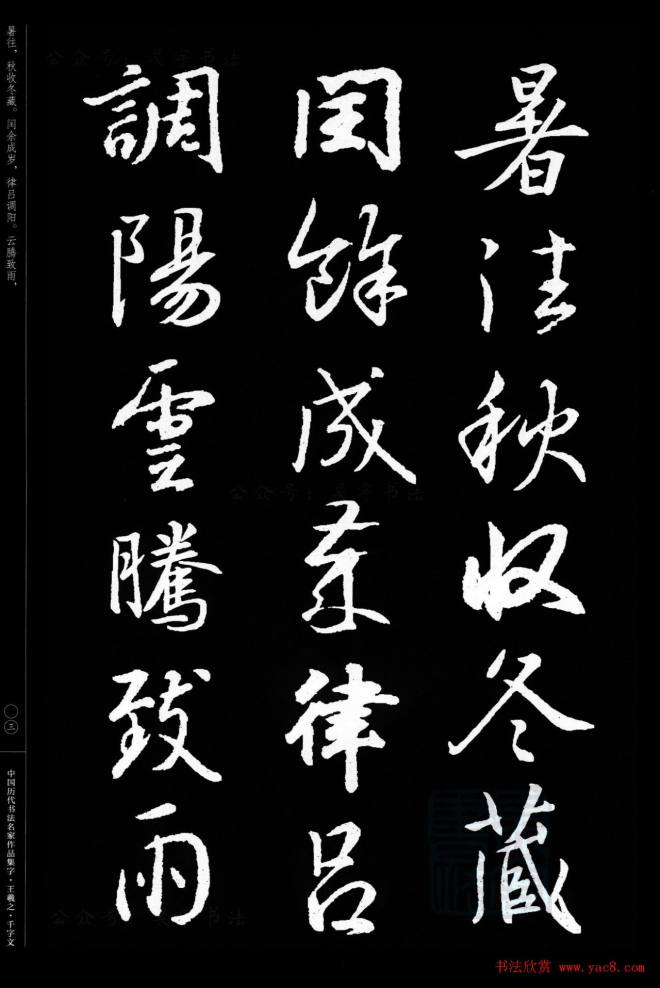 暑往秋收冬藏
閏餘成歲律吕
調陽雲騰致雨
暑往，秋收冬藏。闰余成岁，律吕调阳。云腾致雨，
〇三
中国历代书法名家作品集字·王羲之·千字文
书法欣赏 www.yac8.com